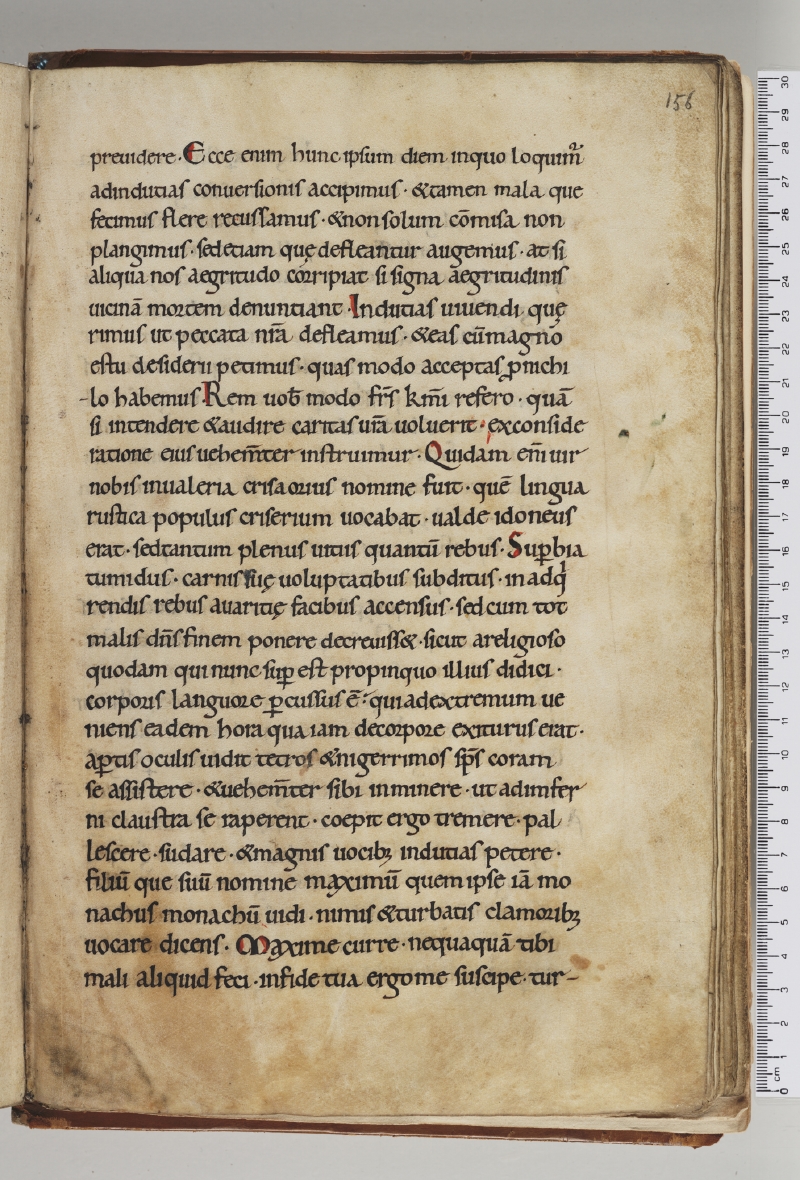 156
preuidere. Ecce enim hunc ipsum diem inquo loquim̃
adindutias conuersionis accipimus. &tamen mala que
fecimus flere recussamus. &non solum cōmisa non
plangimus. sed etiam quę defleantur augemus. at si
aliqua nos aegritudo corripiat si signa aegritudinis
uicinā mortem denuntiant. Indutias uiuendi quę
rimus ut peccata nr̄a defleamus. &eas cū magno
estu desiderii petimus. quas modo acceptas ꝓ nichi
-lo habemus. Rem uob̄ modo fr̄s km̄i refero. quā
si intendere &audire caritas ur̄a uoluerit. exconside
ratione eius uehem̄ter instruimur. Quidam em̄ uir
nobis inualeria crisaorius nomine fuit. quē lingua
rustica populus criserium uocabat. ualde idoneus
erat. sed tantum plenus uitiis quantū rebus. Suꝑbia
tumidus. carnis suę uoluptatibus subditus. in adq̇
rendis rebus auaritię facibus accensus. sed cum tot
malis dn̄s finem ponere decreuiss&. sicut a religioso
quodam qui nunc suꝑ est propinquo illius didici.
corporis languore ꝑcussus ē. qui ad extremum ue
niens eadem hora qua iam de corpore exiturus erat.
aꝑtis oculis uidit tetros &nigerrimos sp̄s coram
se assistere. &uehem̄ter sibi inminere. ut ad infer
ni claustra se raperent. coepit ergo tremere. pal
lescere. sudare. &magnis uocibꝫ indutias petere.
filiū que suū nomine maximū quem ipse iā mo
nachus monachū uidi. nimis &turbatis clamoribꝫ
uocare dicens. Maxime curre. nequaquā tibi
mali aliquid feci. infide tua ergo me suscipe. tur-